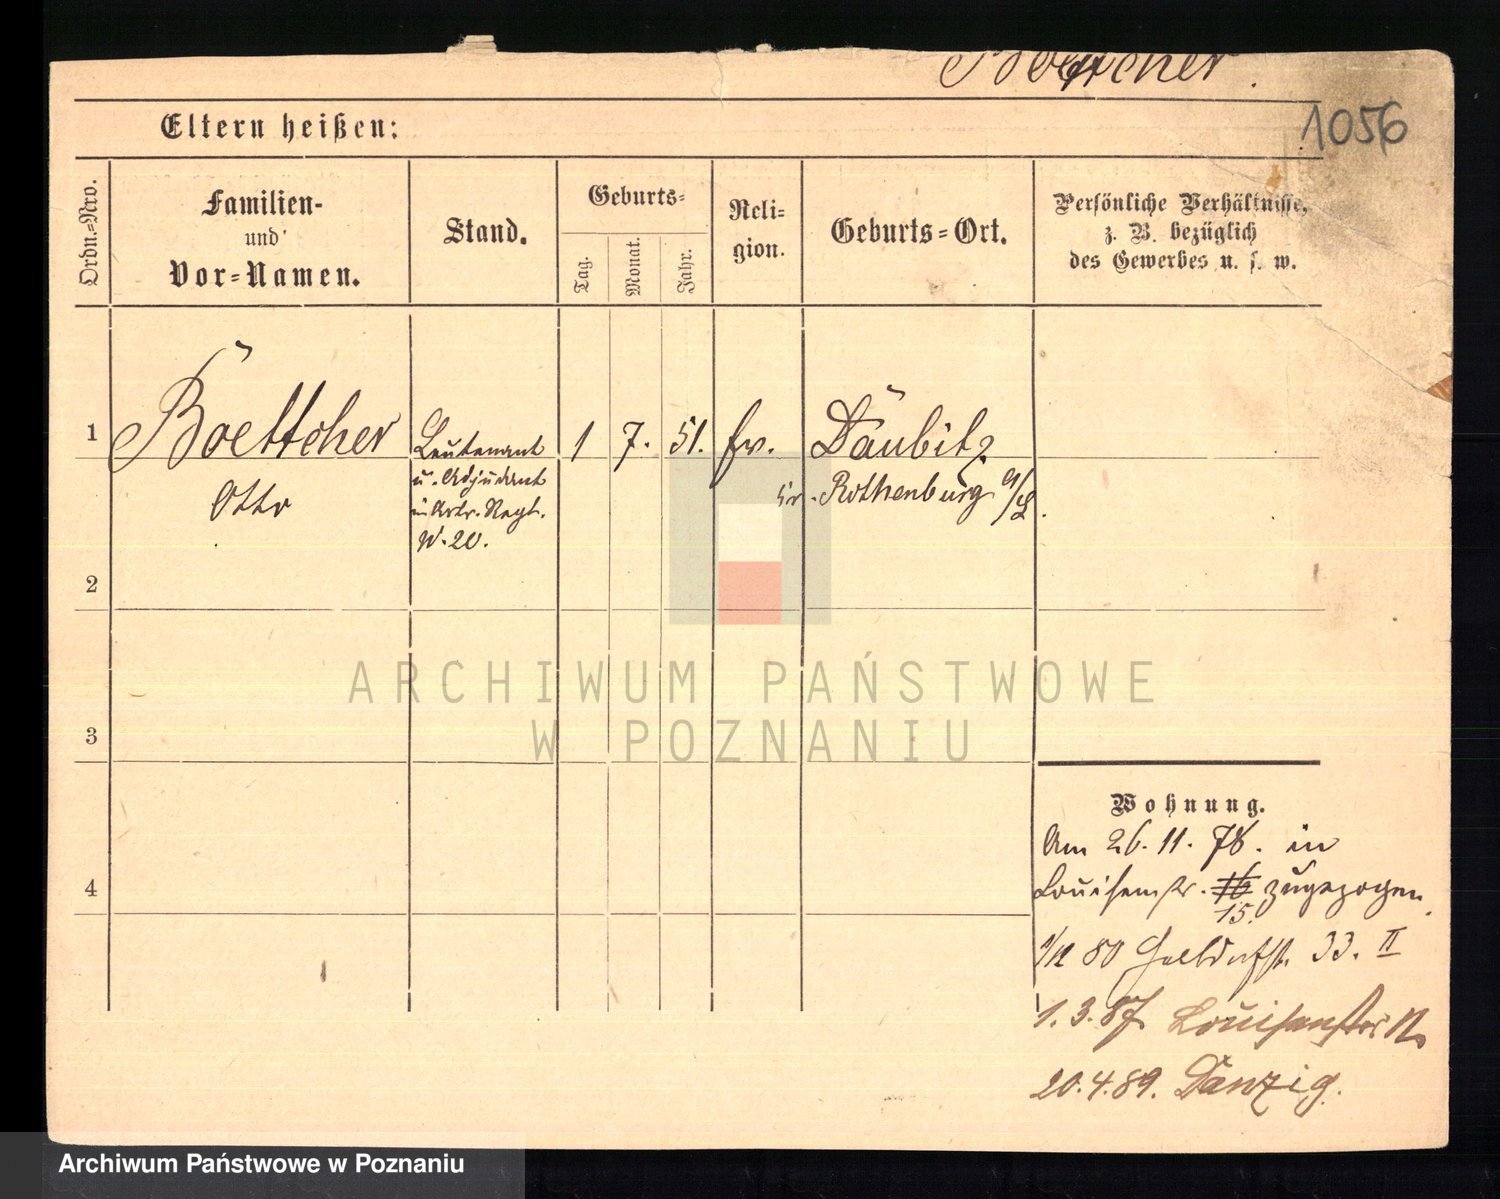 Boettcher.
1056
Eltern heißen:
Ordn.-Nro.
Familien-
und
Vor-Namen.
Stand.
Geburts-
Tag.
Monat.
Jahr.
Reli-
gion.
Geburts-Ort.
Persönliche Verhältnisse,
z. B. bezüglich
des Gewerbes u. s. w.
1
Böettcher
Otto
Leutenant
u. Adjudant
Regt.
N. 20.
1
7.
51.
Däubitz
Kr. Rothenburg a/L.
2
3
4
Wohnung.
Am 26. 11. 78. in
Louisenstr. 16 zugezogen
15.
80 33. II
1. 3. 87 Louisenstr
20.4.89. Danzig.
ARCHIWUM PAŃSTWOWE
W POZNANIU
Archiwum Państwowe w Poznaniu